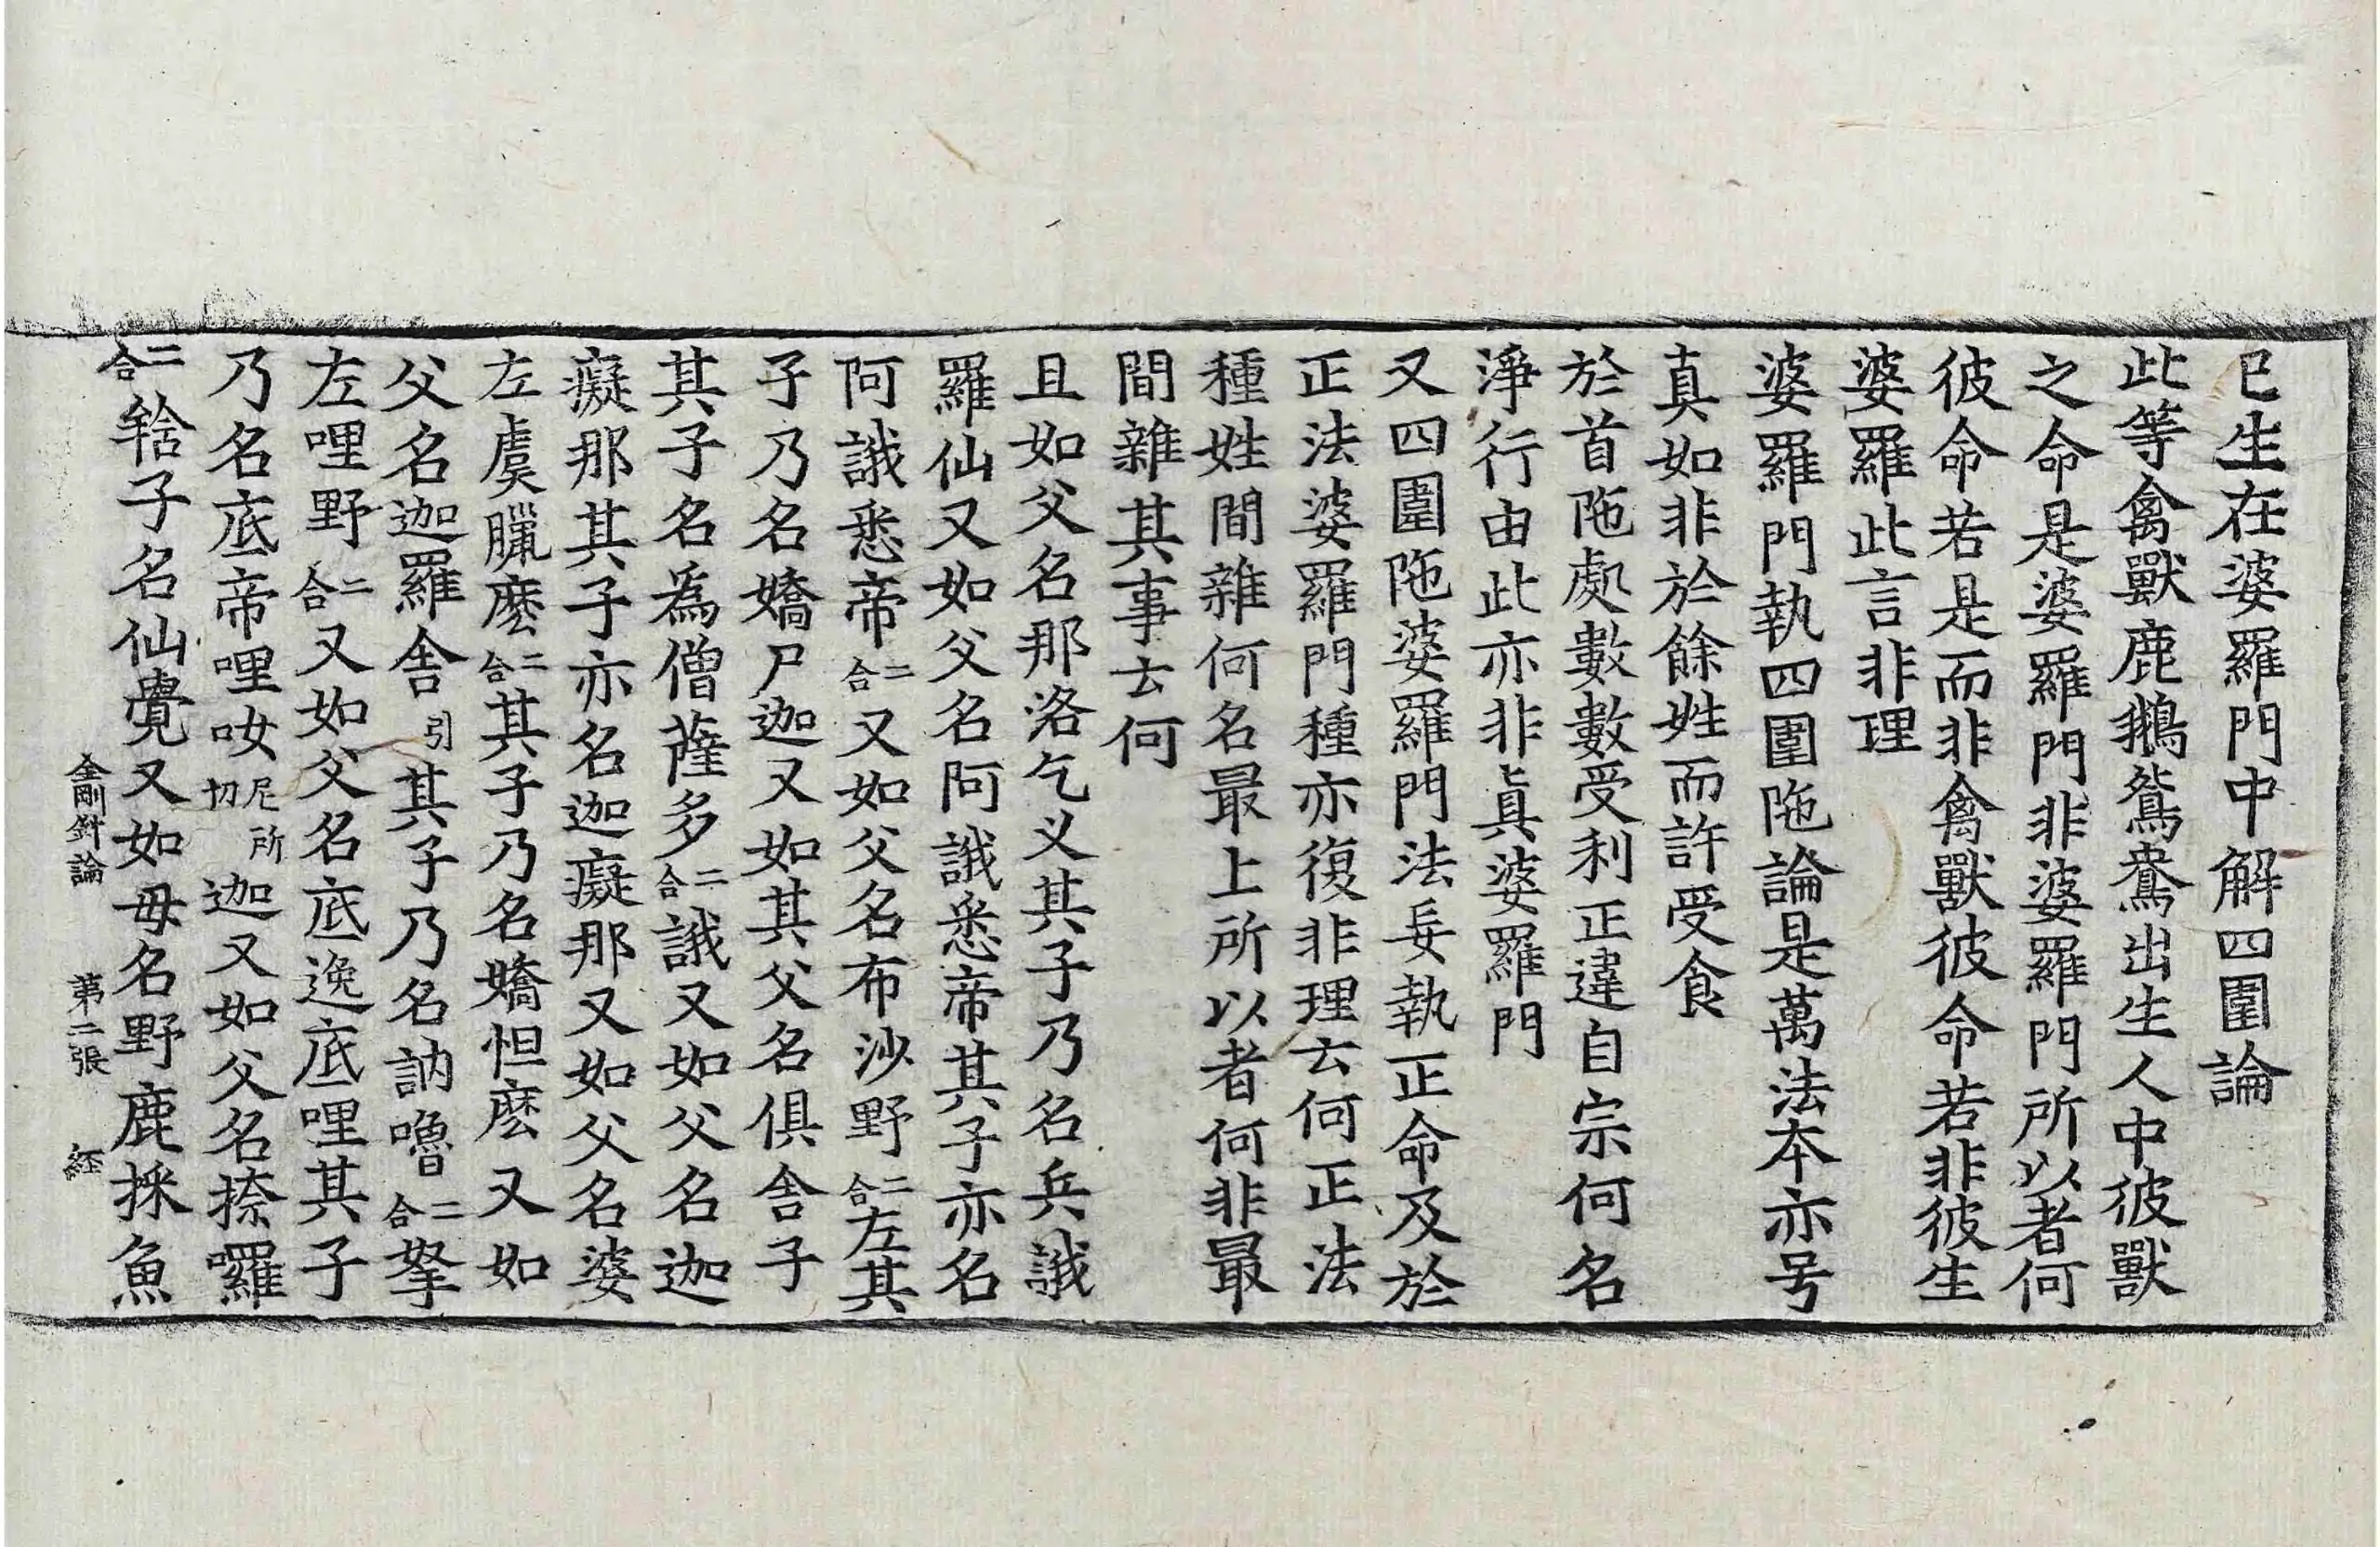 已生在婆羅門中解四圍論
此等禽獸鹿鵝鴛鴦出生人中彼獸
之命是婆羅門非婆羅門所以者何
彼命若是而非禽獸彼命若非彼生
婆羅此言非理
婆羅門執四圍陁論是萬法本亦号
真如非於餘姓而許受食
於首陁處數數受利正違自宗何名
淨行由此亦非眞婆羅門
又四圍陁婆羅門法妄執正命及於
正法婆羅門種亦復非理云何正法
種姓間雜何名最上所以者何非最
間雜其事云何
且如父名那洛乞义其子乃名兵誐
羅仙又如父名阿誐悉帝其子亦名
阿誐悉帝二合又如父名布沙野二合左其
子乃名嬌尸迦又如其父名俱舍子
其子名爲僧薩多二合誐又如父名迦
癡那其子亦名迦癡那又如父名婆
左虞臘麽二合其子乃名嬌怛麽又如
父名迦羅舍引其子乃名訥嚕二合拏
左哩野二合又如父名底逸底哩其子
乃名底帝哩呶尼所切迦又如父名捺囉
二合䅁子名仙覺又如母名野鹿採魚
金剛針論 第二張 經